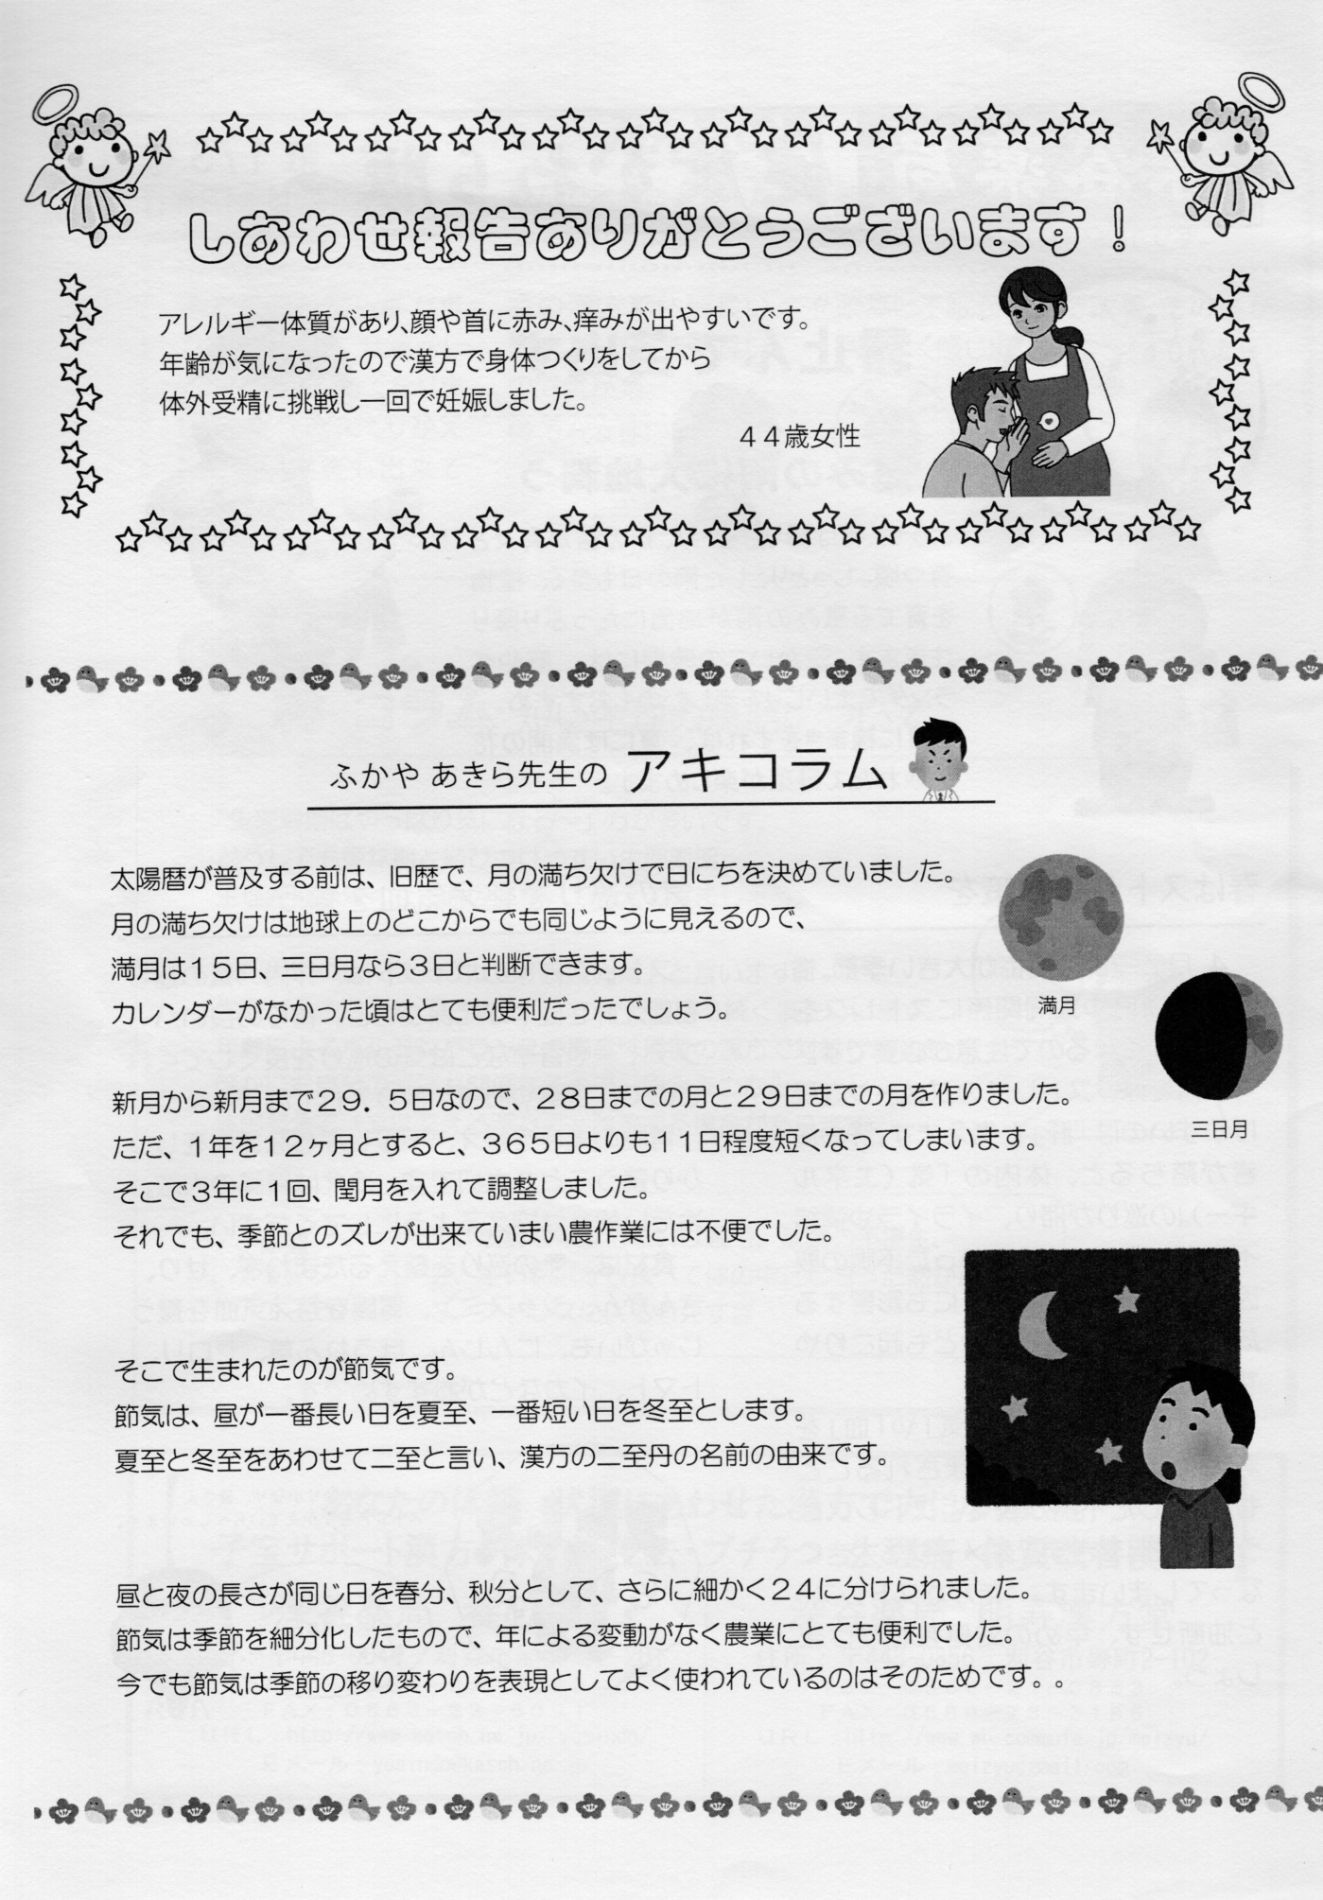 しあわせ報告ありがとうございます！
アレルギー体質があり、顔や首に赤み、痒みが出やすいです。
年齢が気になったので漢方で身体つくりをしてから
体外受精に挑戦し一回で妊娠しました。
４４歳女性
ふかや あきら先生の アキコラム
太陽暦が普及する前は、旧歴で、月の満ち欠けで日にちを決めていました。
月の満ち欠けは地球上のどこからでも同じように見えるので、
満月は１５日、三日月なら３日と判断できます。
カレンダーがなかった頃はとても便利だったでしょう。
満月
三日月
新月から新月まで２９．５日なので、２８日までの月と２９日までの月を作りました。
ただ、１年を１２ヶ月とすると、３６５日よりも１１日程度短くなってしまいます。
そこで３年に１回、閏月を入れて調整しました。
それでも、季節とのズレが出来ていまい農作業には不便でした。
そこで生まれたのが節気です。
節気は、昼が一番長い日を夏至、一番短い日を冬至とします。
夏至と冬至をあわせて二至と言い、漢方の二至丹の名前の由来です。
昼と夜の長さが同じ日を春分、秋分として、さらに細かく２４に分けられました。
節気は季節を細分化したもので、年による変動がなく農業にとても便利でした。
今でも節気は季節の移り変わりを表現としてよく使われているのはそのためです。。